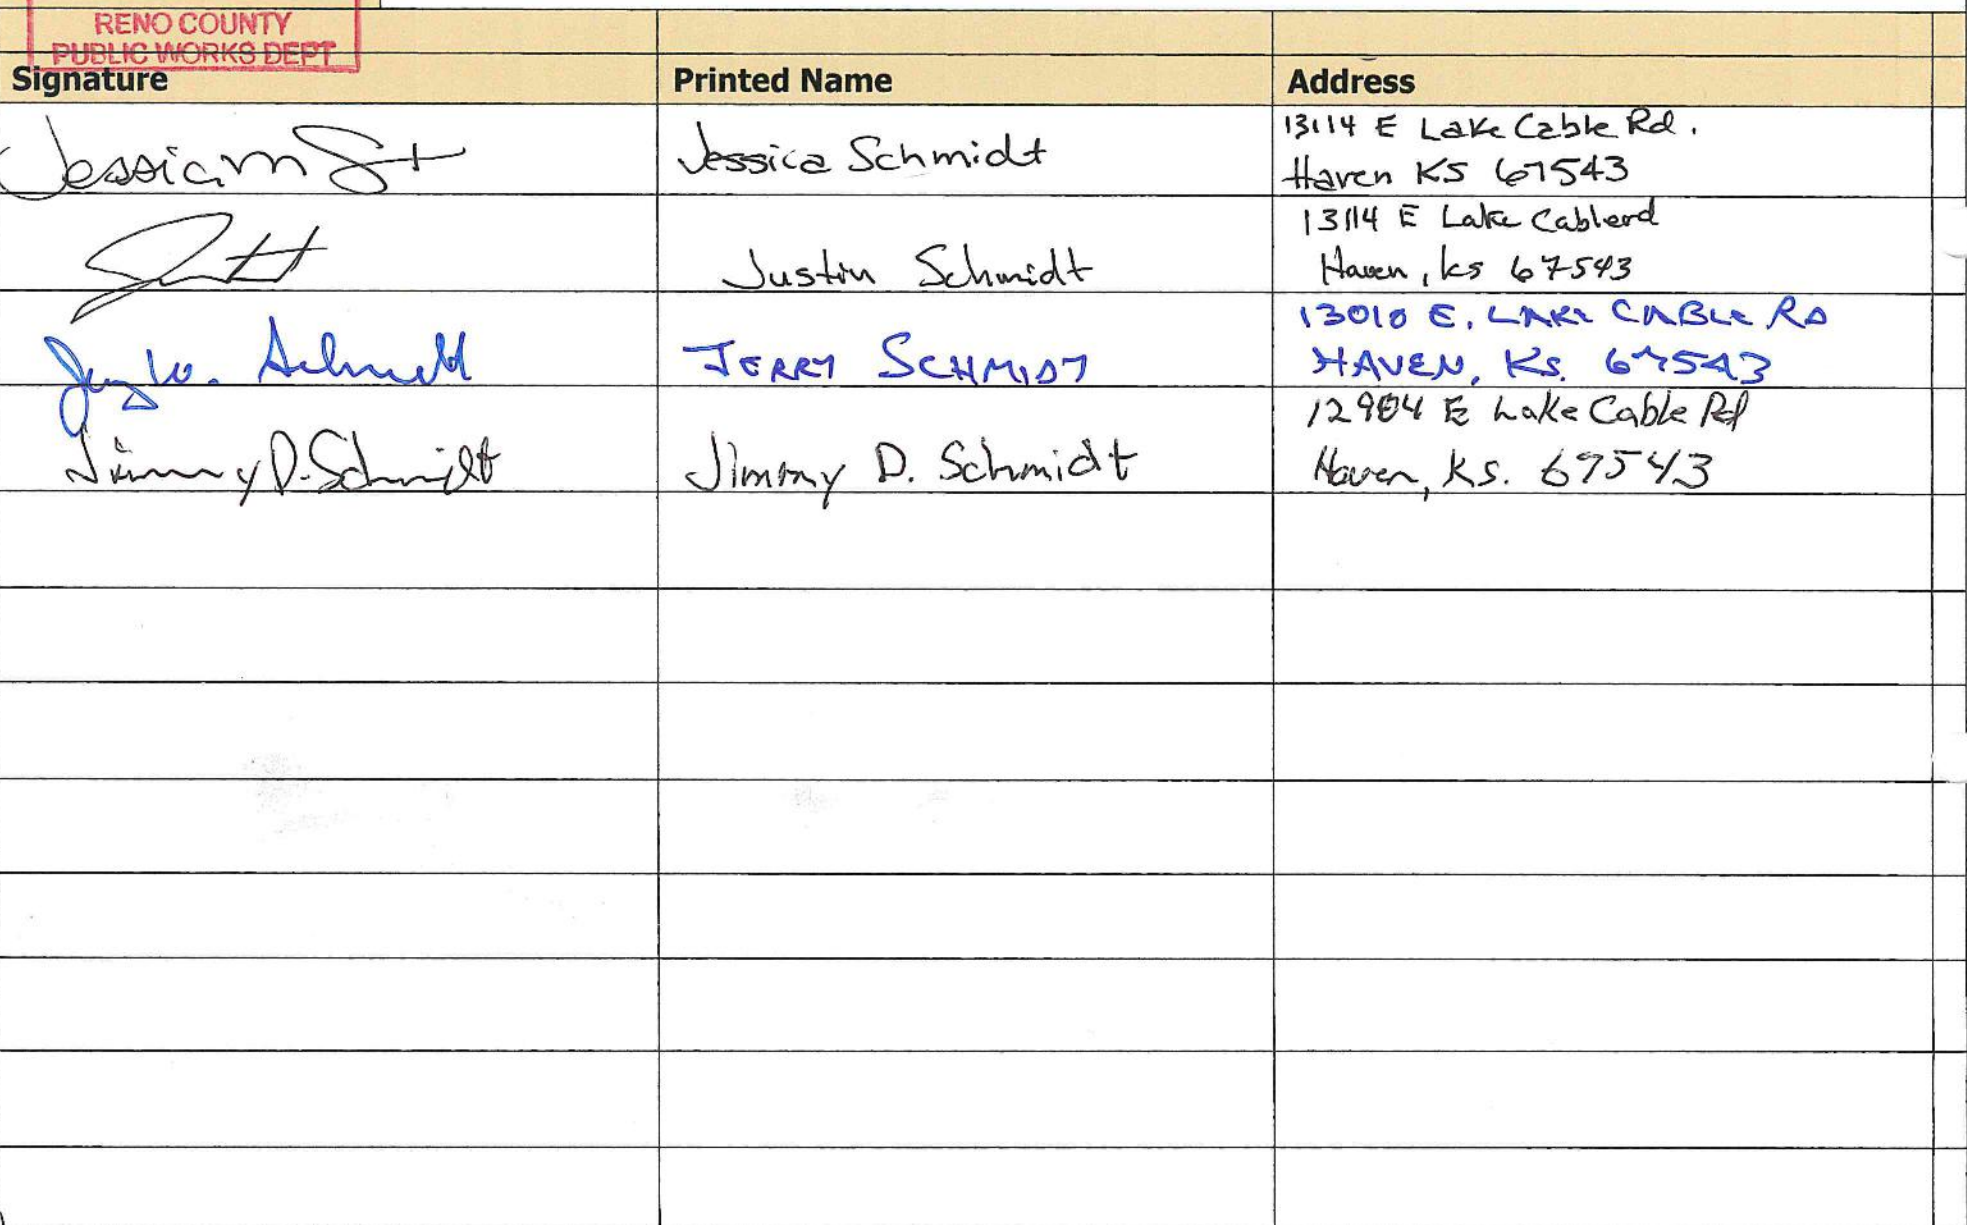 RENO COUNTY
PUBLIC WORKS DEPT
Signature Printed Name Address
Jessica Schmidt 13114 E Lake Cable Rd.
Haven KS 67543
Justin Schmidt 13114 E Lake Cablerd
Haven, ks 67543
Jerry W. Schmidt JERRY SCHMIDT 13010 E. LAKE CABLE RD
HAVEN, KS. 67543
Jimmy D. Schmidt Jimmy D. Schmidt 12904 E Lake Cable Rd
Haven, Ks. 67543